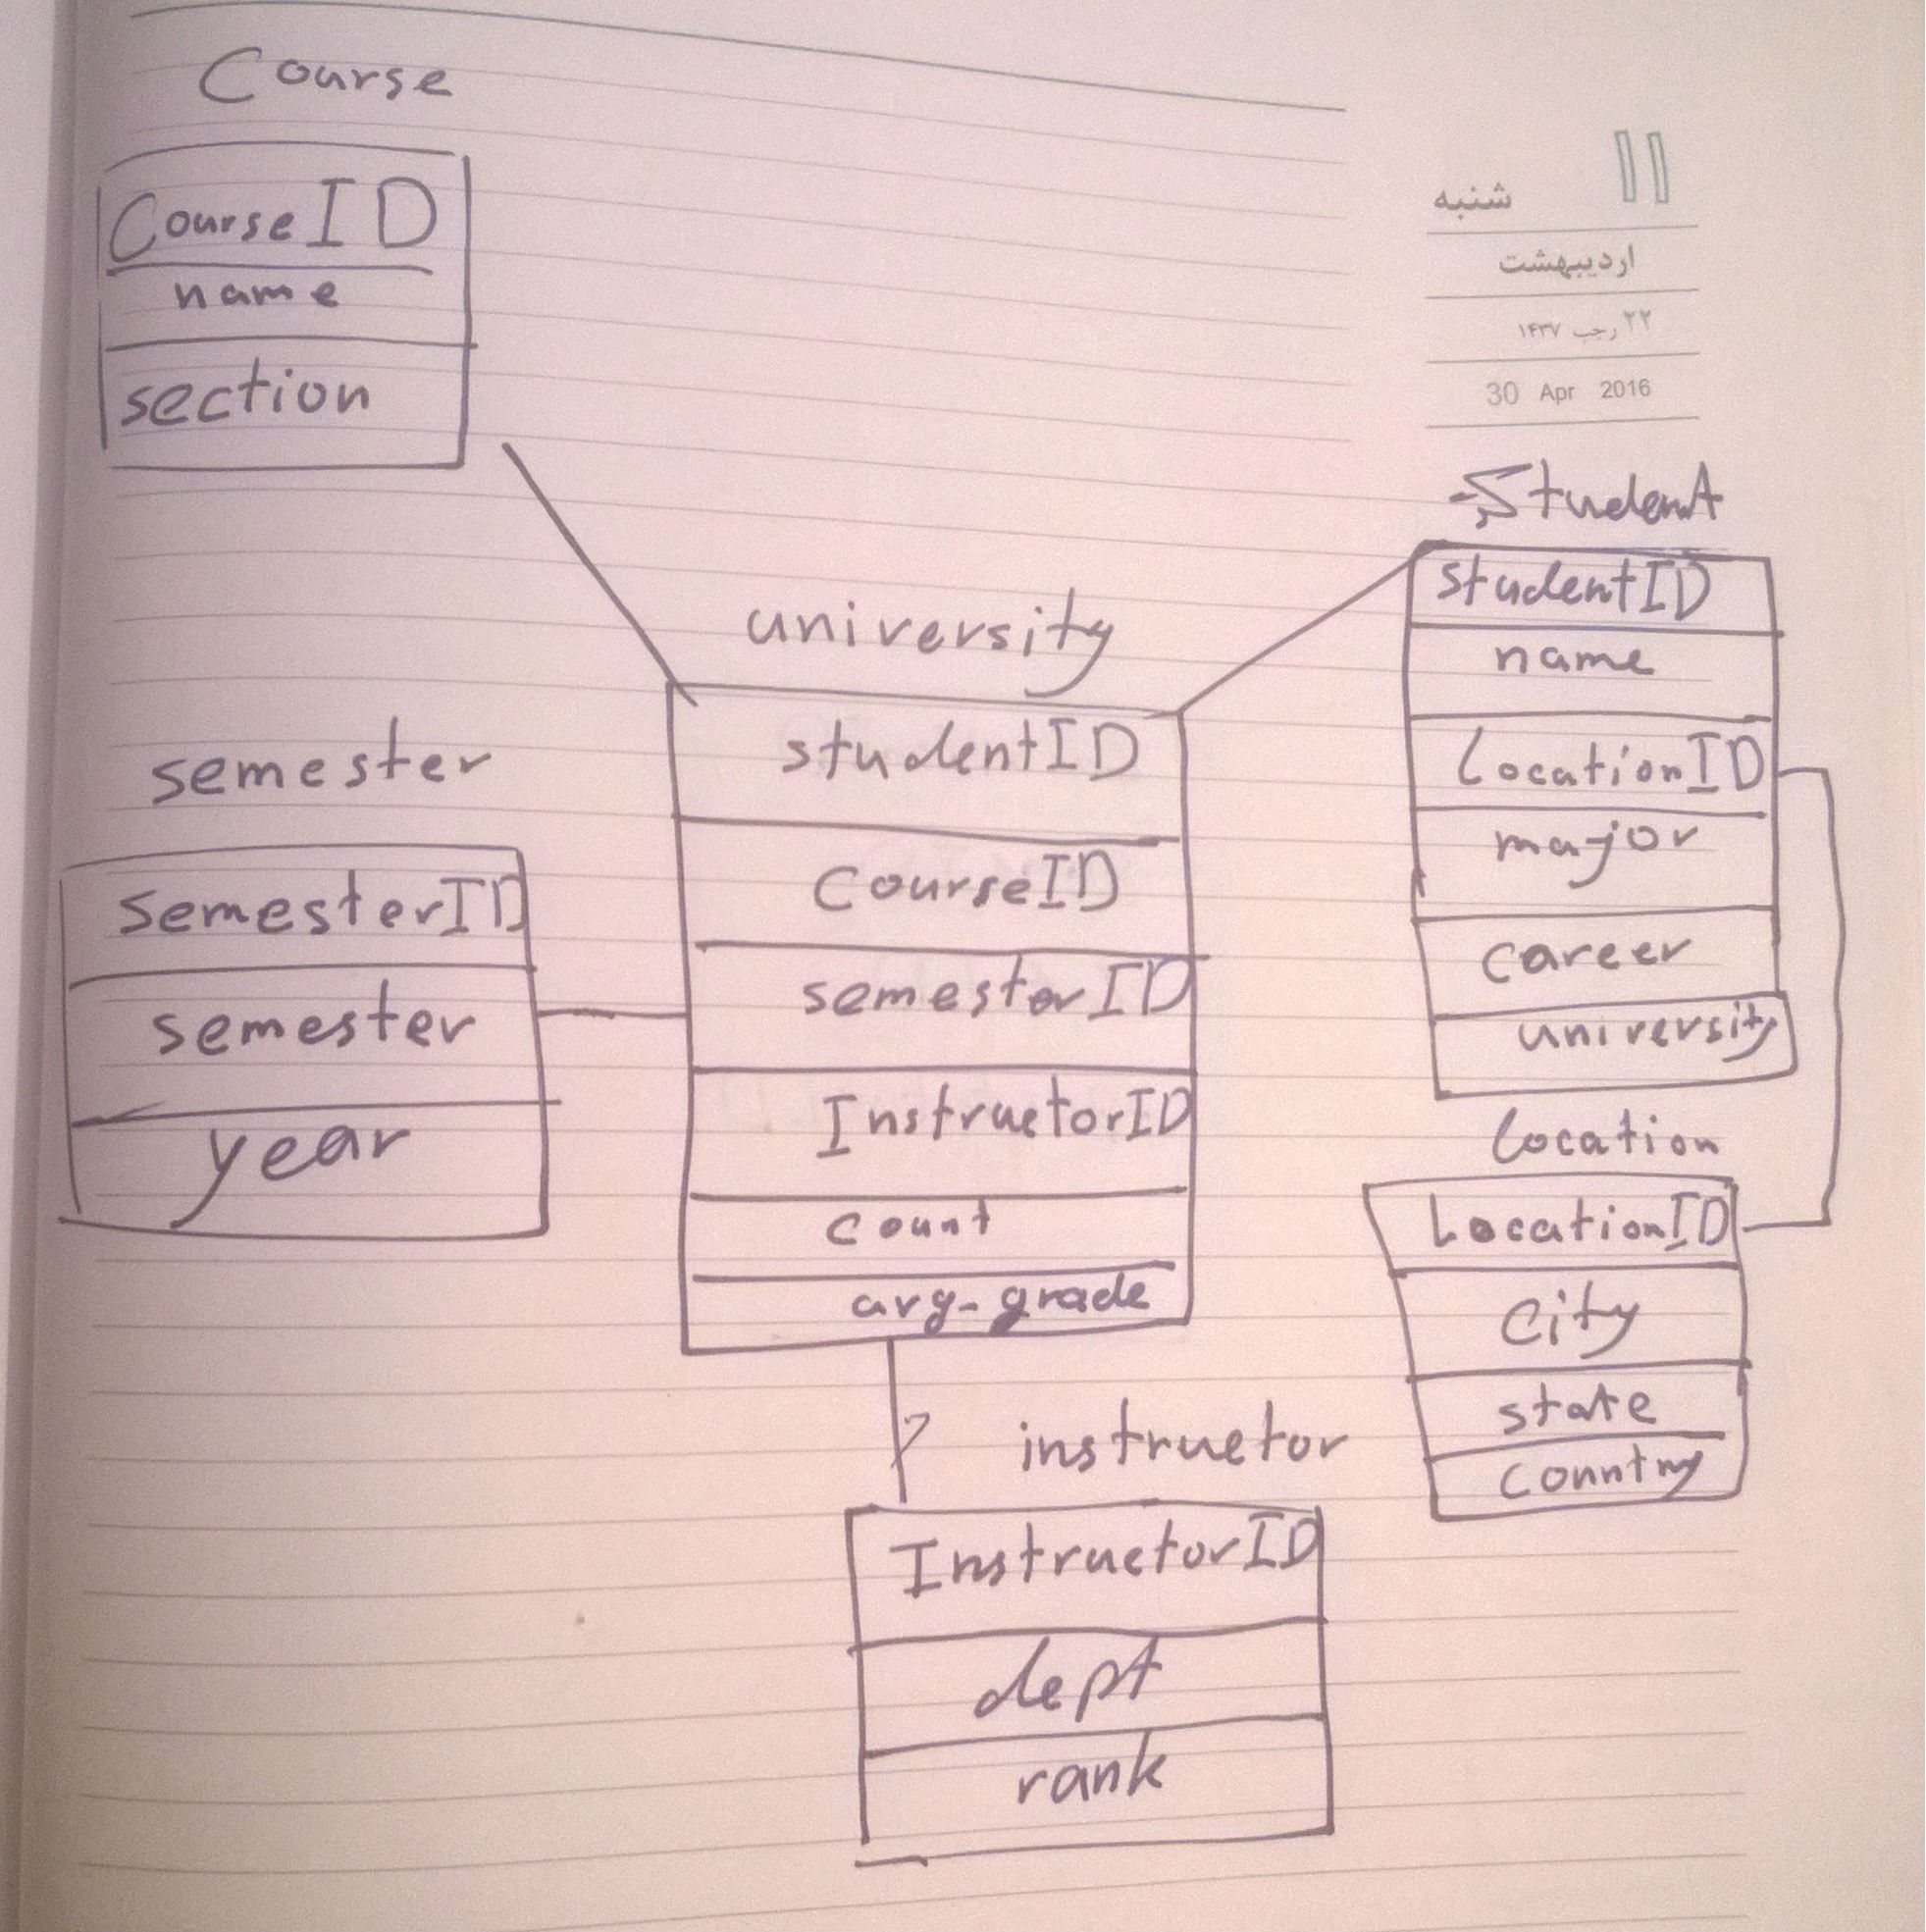 Course
CourseID
name
section
۱۱
شنبه
اردیبهشت
۲۲ رجب ۱۴۳۷
30 Apr 2016
Student
studentID
name
LocationID
major
career
university
university
studentID
CourseID
semesterID
InstructorID
count
avg-grade
semester
semesterID
semester
year
Location
LocationID
city
state
country
instructor
InstructorID
dept
rank